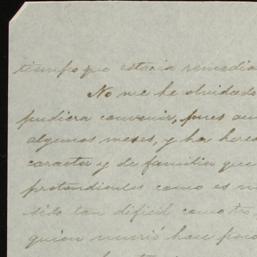 tiempo que estaria remedia
No me he olvidado
pudiera convenir, pues au
algunos meses, y ha here
caracter y de familia que
pretendientes como es n
tan dificil como
quien murió hace poco